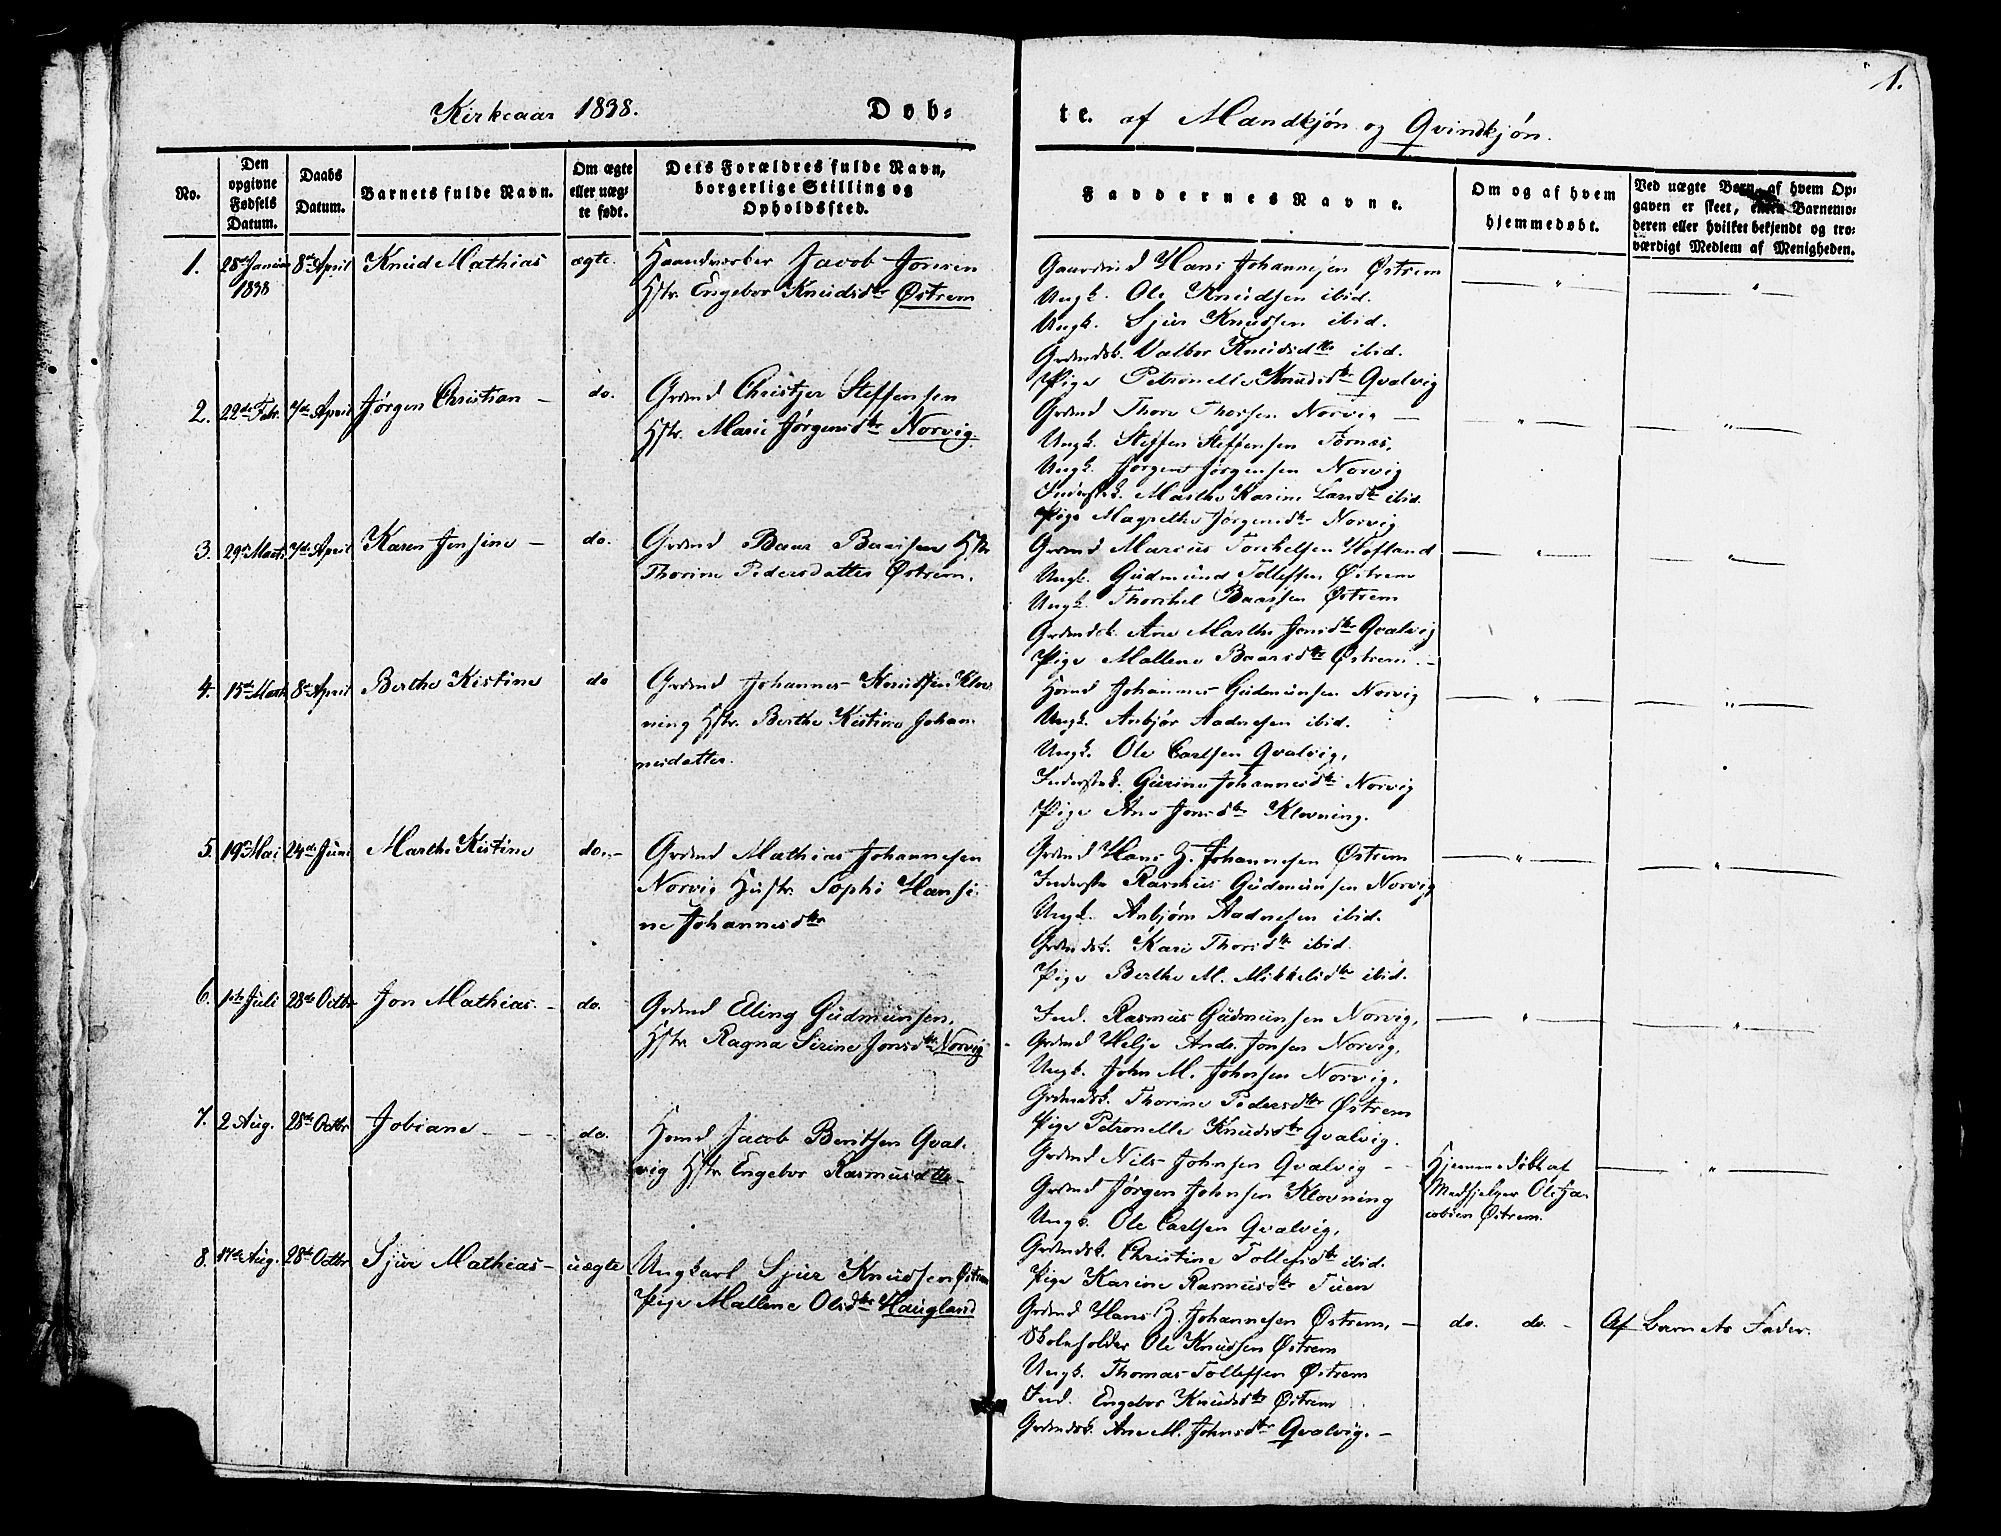 1.
Kirkeaar 1838.
Døb-
te. af Mandkjøn og Qvindkjøn.
No.
Den opgivne Fødsels Datum.
Daabs Datum.
Barnets fulde Navn.
Om ægte eller uægte født.
Dets Forældres fulde Navn, borgerlige Stilling og Opholdssted.
Faddernes Navne.
Om og af hvem hjemmedøbt.
Ved uægte Børn, af hvem Opgaven er skeet, enten Barnemoderen eller hvilket bekjendt og troværdigt Medlem af Menigheden.
1.
28de Januar 1838
8de April
Knud Mathias
ægte.
Haandværker Jacob Jonsen
Hstr. Engebor Knudsdtr Østrem
Gaardmd Hans Johannesen Østrem
Ungk. Ole Knudsen ibid.
Ungk. Sjur Knudsen ibid.
Grdmdsk. Valbor Knudsdtr ibid.
Pige Petronelle Knudsdtr Qvalvig
2.
22de Febr.
7de April
Jørgen Christian -
do.
Grdmd Christjer Steffensen
Hstr. Marie Jørgensdtr Norvig.
Grdmd Thore Thorsen Norvig -
Ungk. Steffen Steffensen Fornæs,
Ungk. Jørgen Jørgensen Norvig
Inderstk. Marthe Karine Larsdtr ibid.
Pige Magrethe Jørgensdtr Norvig
3.
29de Marts
7de April
Karen Jensine -
do.
Grdmd Baar Baarsen Hstr
Thorine Pedersdatter Østrem.
Grdmd Marcus Torchelsen Høfland
Ungk. Gudmund Tollefsen Østrem
Ungk. Thorchel Baarsen Østrem
Grdmdsk. Ane Marthe Jonsdtr Qvalvig
Pige Mallene Baarsdtr Østrem. -
4.
15de Marts
8de April
Berthe Kistine
do
Grdmd Johannes Knudsen Klov-
ning Hstr. Berthe Kistine Johan-
nesdatter.
Hsmd Johannes Gudmunsen Norvig
Ungk. Anbjør Aadnesen ibid.
Ungk. Ole Carlsen Qvalvig,
Inderstsk. Gurine Johannesdtr Norvig
Pige Ane Jonsdtr Klovning.
5.
19de Mai
24de Juni
Marthe Kistine
do. -
Grdmd Mathias Johannesen
Norvig Hustr. Sophi Hansi-
ne Johannesdtr
Grdmd Hans Z. Johannesen Østrem
Inderste Rasmus Gudmunsen Norvig
Ungk. Anbjørn Aadnesen ibid.
Grdmdsk. Kari Thorsdtr ibid.
Pige Berthe M. Mikkelsdtr ibid.
6.
1ste Juli
28de Octbr
Jon Mathias. -
do.
Grdmd Elling Gudmunsen,
Hstr. Ragna Serine Jonsdtr Norvig
Ind. Rasmus Gudmunsen Norvig,
Grdmd Helje Andr. Jonsen Norvig,
Ungk. John M. Johnsen Norvig,
Grdmdsk. Thorine Pedersdtr Østrem
Pige Petronelle Knudsdtr Qvalvig.
7.
2 Aug.
28de Octbr
Jobiane - -
do.
Hsmd Jacob Beritsen Qval-
vig Hstr. Engebor Rasmusdtr -
Grdmd Nils Johnsen Qvalvig -
Grdmd Jørgen Johnsen Klovning
Ungk. Ole Carlsen Qvalvig,
Grdmdsk. Christine Tollefsdtr ibid.
Pige Karine Rasmusdtr Tuen
Hjemmedøbt af
Medhjelper Ole Ja-
cobsen Østrem.
8.
17de Aug.
28de Octbr
Sjur Mathias -
uægte
Ungkarl Sjur Knudsen Østrem
Pige Mallene Olsdtr Haugland
Grdmd Hans Z. Johannesen Østrem, -
Skoleholder Ole Knudsen Østrem
Ungk. Thomas Tollefsen Østrem
Ind. Engebor Knudsdtr Østrem
Grdmdsk. Ane M. Johnsdtr Qvalvig. -
do. do. -
Af Barnets Fader.